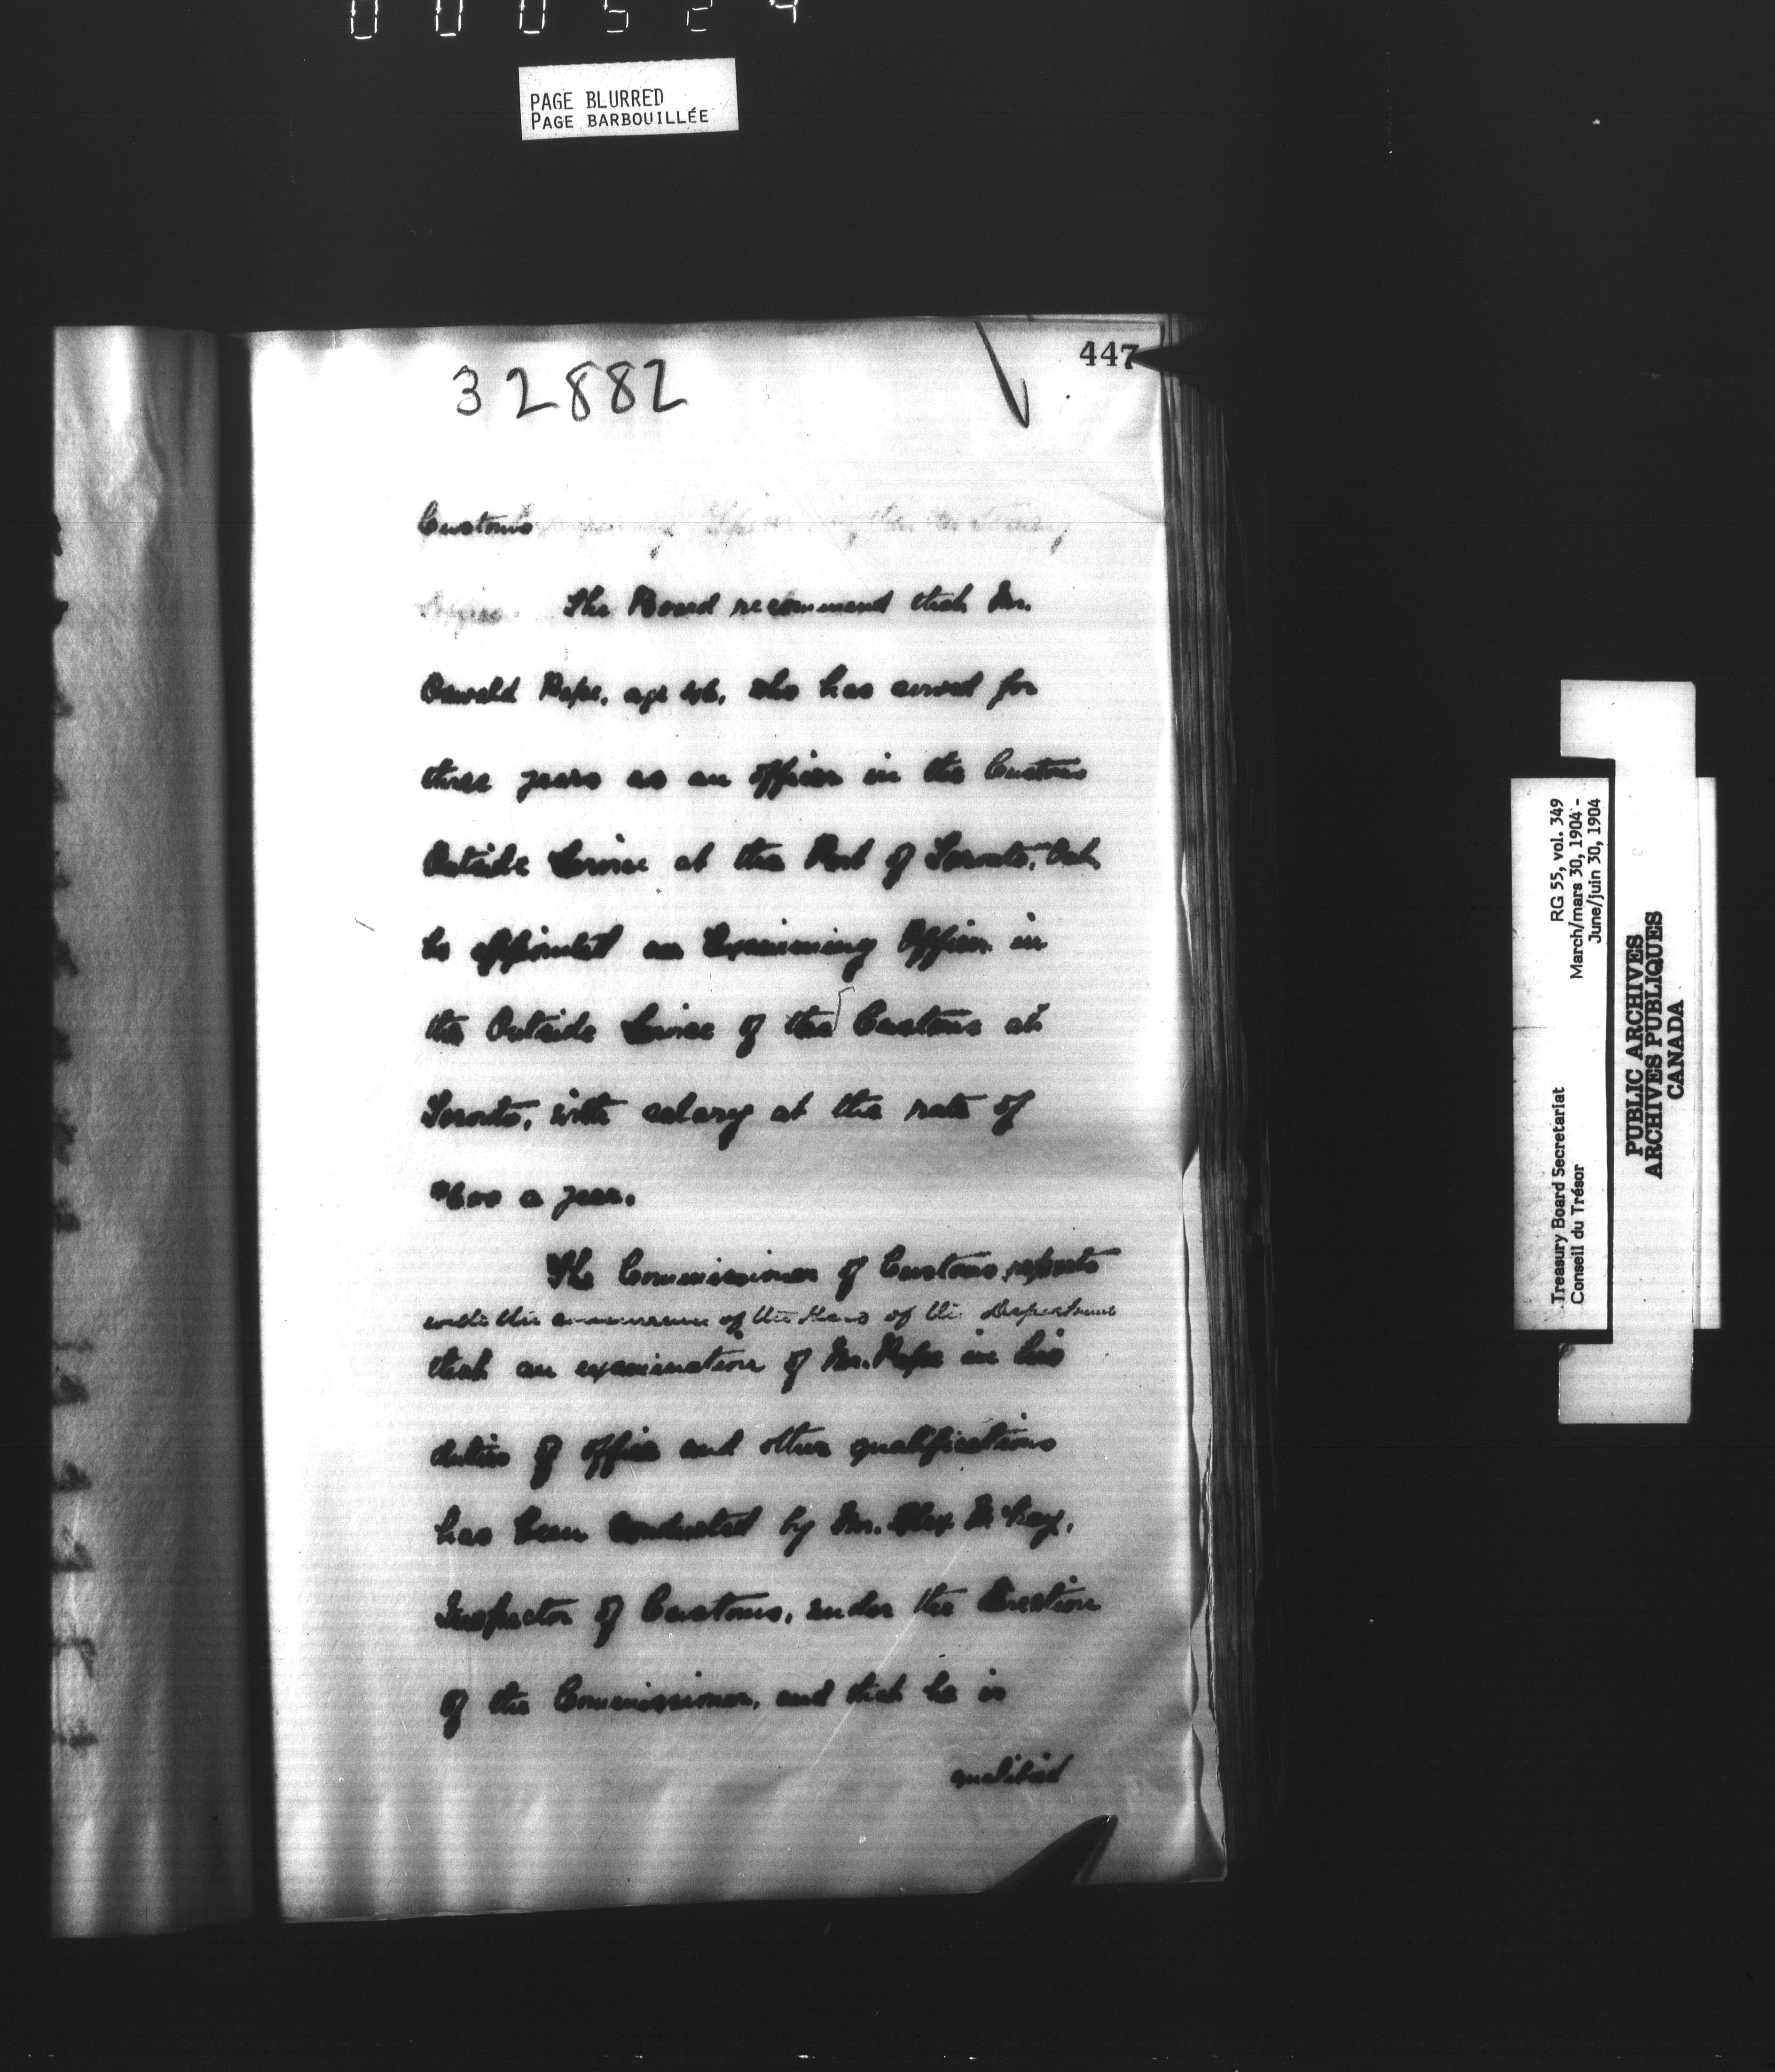 000524
PAGE BLURRED
PAGE BARBOUILLÉE
447
32882
Customs
The Board recommend that Mr.
Oswald Pape, age 46, who has served for
three years as an officer in the Customs
Outside Service at the Port of Toronto, Ont.
be appointed an Examining Officer in
the Outside Service of the Customs at
Toronto, with salary at the rate of
a year.
The Commissioner of Customs reports
with the concurrence of the Head of the Department
that an examination of Mr. Pape in his
duties of office and other qualifications
has been conducted by Mr. Alex McKay,
Inspector of Customs, under the direction
of the Commissioner, and that he is
qualified
Treasury Board Secretariat
Conseil du Trésor
RG 55, vol. 349
March/mars 30, 1904 -
June/juin 30, 1904
PUBLIC ARCHIVES
ARCHIVES PUBLIQUES
CANADA